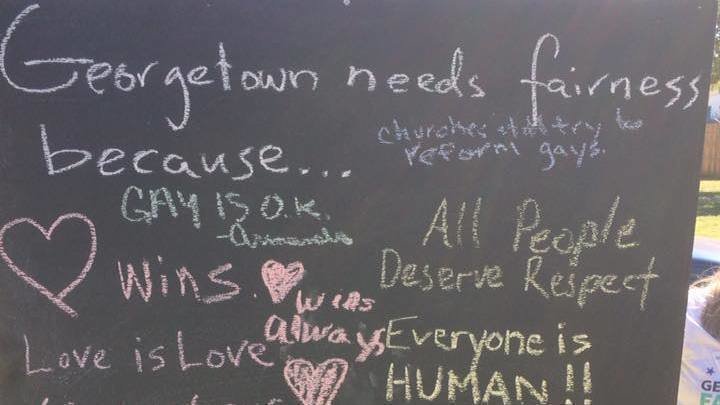 Georgetown needs fairness
because...
churches try to
reform gays.
GAY IS O.K.
All People
Deserve Respect
Wins.
wins
always
Love is Love
Everyone is
HUMAN !!
GE